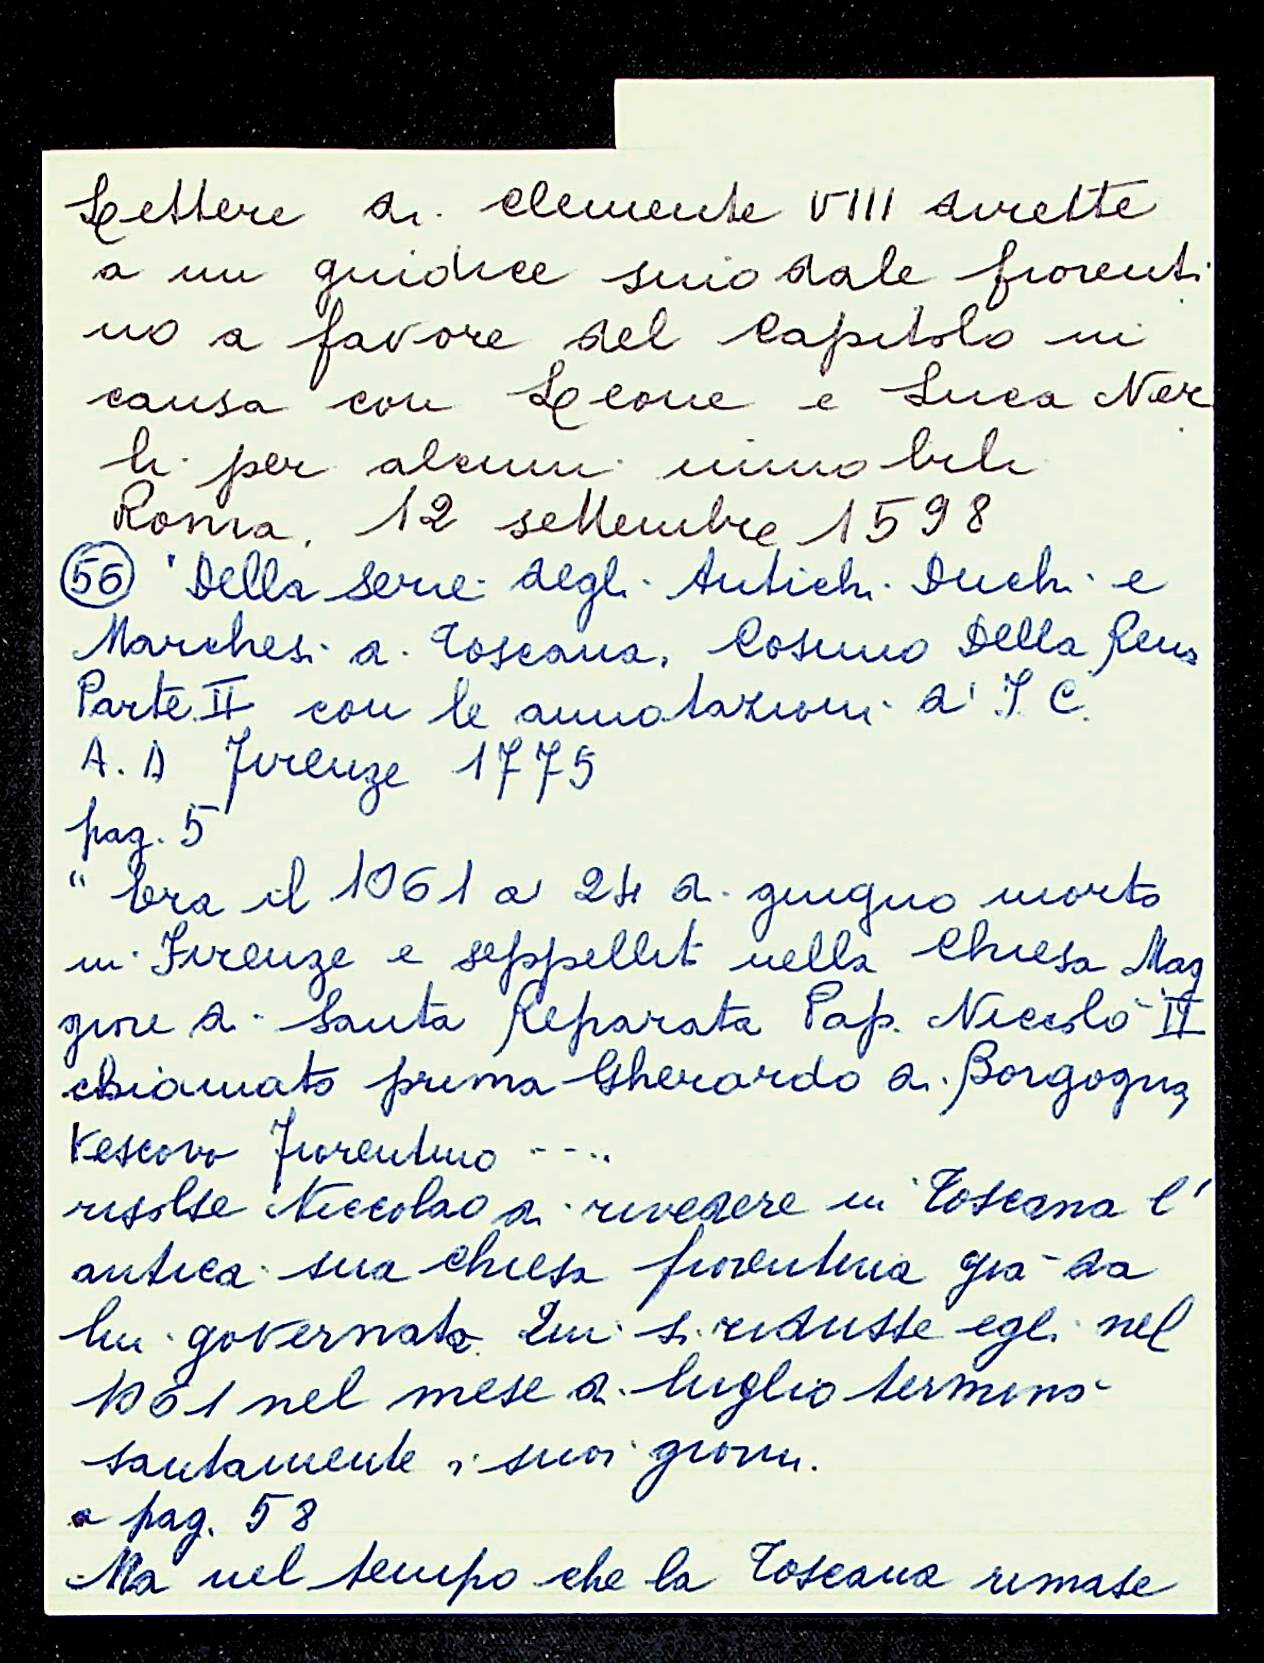 Lettere di Clemente VIII dirette
a un giudice sinodale fiorenti
no a favore del Capitolo in
causa con Leone e Luca Ner
li per alcuni immobili
Roma, 12 settembre 1598
56 "Della serie degli Antichi Duchi e
Marchesi di Toscana, Cosimo Della Rena
Parte II con le annotazioni di I C.
A. D Firenze 1775
pag. 5
" Era il 1061 a' 24 di giugno morto
in Firenze e seppellito nella Chiesa Mag
giore di Santa Reparata Pap. Niccolò II
chiamato prima Gherardo di Borgogna,
Vescovo Fiorentino ....
risolse Niccolao di rivedere in Toscana l'
antica sua chiesa fiorentina già da
lui governata. Qui si ridusse egli nel
1061 nel mese di luglio terminò
santamente i suoi giorni.
a pag. 58
Ma nel tempo che la Toscana rimase